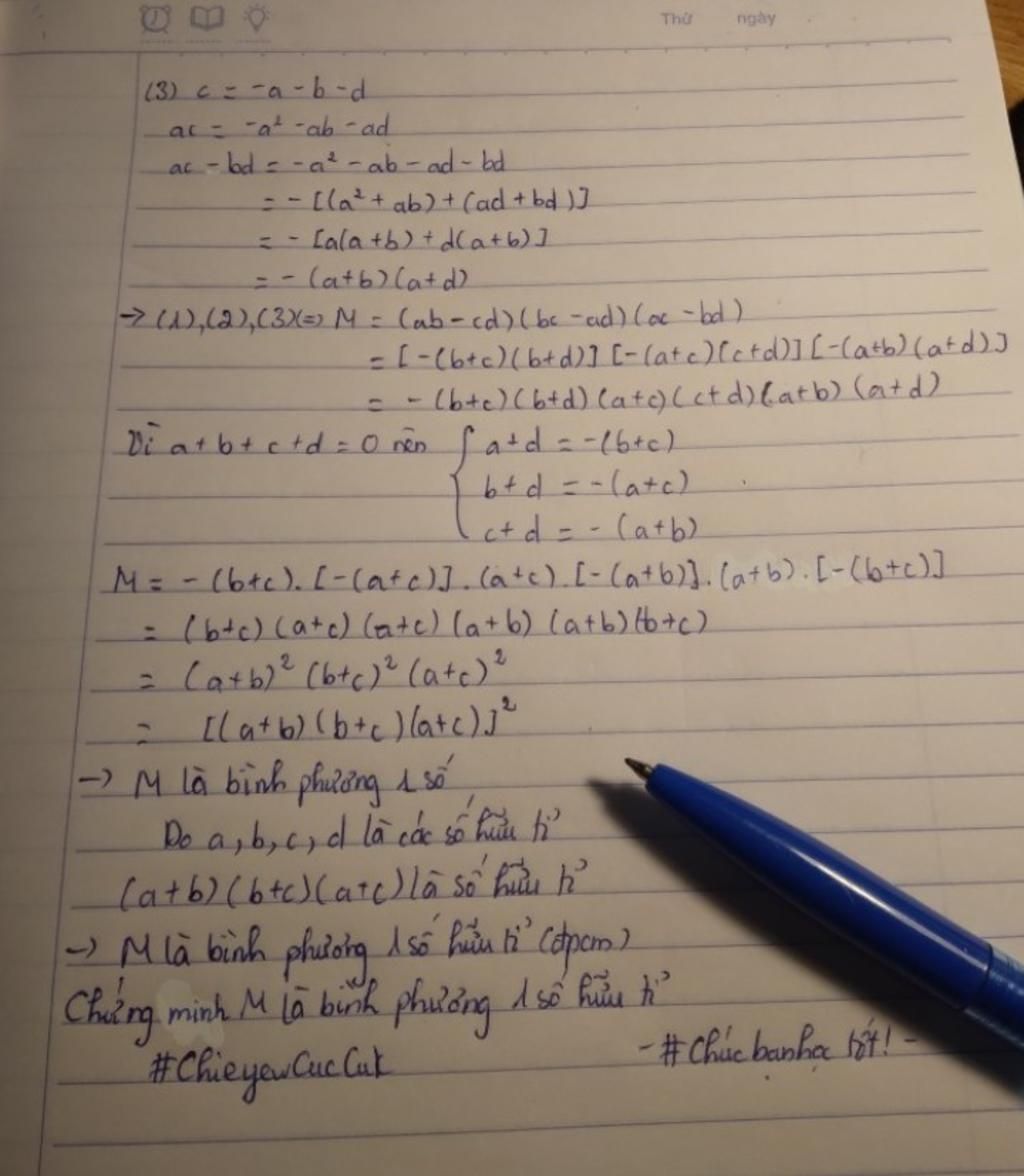 Thứ ngày
(3) c = -a - b - d
ac = -a² - ab - ad
ac - bd = -a² - ab - ad - bd
= - [(a² + ab) + (ad + bd)]
= - [a(a + b) + d(a + b)]
= - (a+b)(a+d)
→ (1), (2), (3) (=) M = (ab - cd)(bc - ad)(ac - bd)
= [-(b+c)(b+d)] [-(a+c)(c+d)] [-(a+b)(a+d)]
= - (b+c)(b+d)(a+c)(c+d)(a+b)(a+d)
Vì a + b + c + d = 0 nên { a + d = -(b+c)
b + d = -(a+c)
c + d = -(a+b)
M = -(b+c). [-(a+c)]. (a+c). [-(a+b)]. (a+b). [-(b+c)]
= (b+c)(a+c)(a+c)(a+b)(a+b)(b+c)
= (a+b)² (b+c)² (a+c)²
= [(a+b)(b+c)(a+c)]²
→ M là bình phương 1 số
Do a, b, c, d là các số hữu tỉ
(a+b)(b+c)(a+c) là số hữu tỉ
→ M là bình phương 1 số hữu tỉ (đpcm)
Chứng minh M là bình phương 1 số hữu tỉ
#ChieyewCucCuk - #Chúc bạn học tốt! -